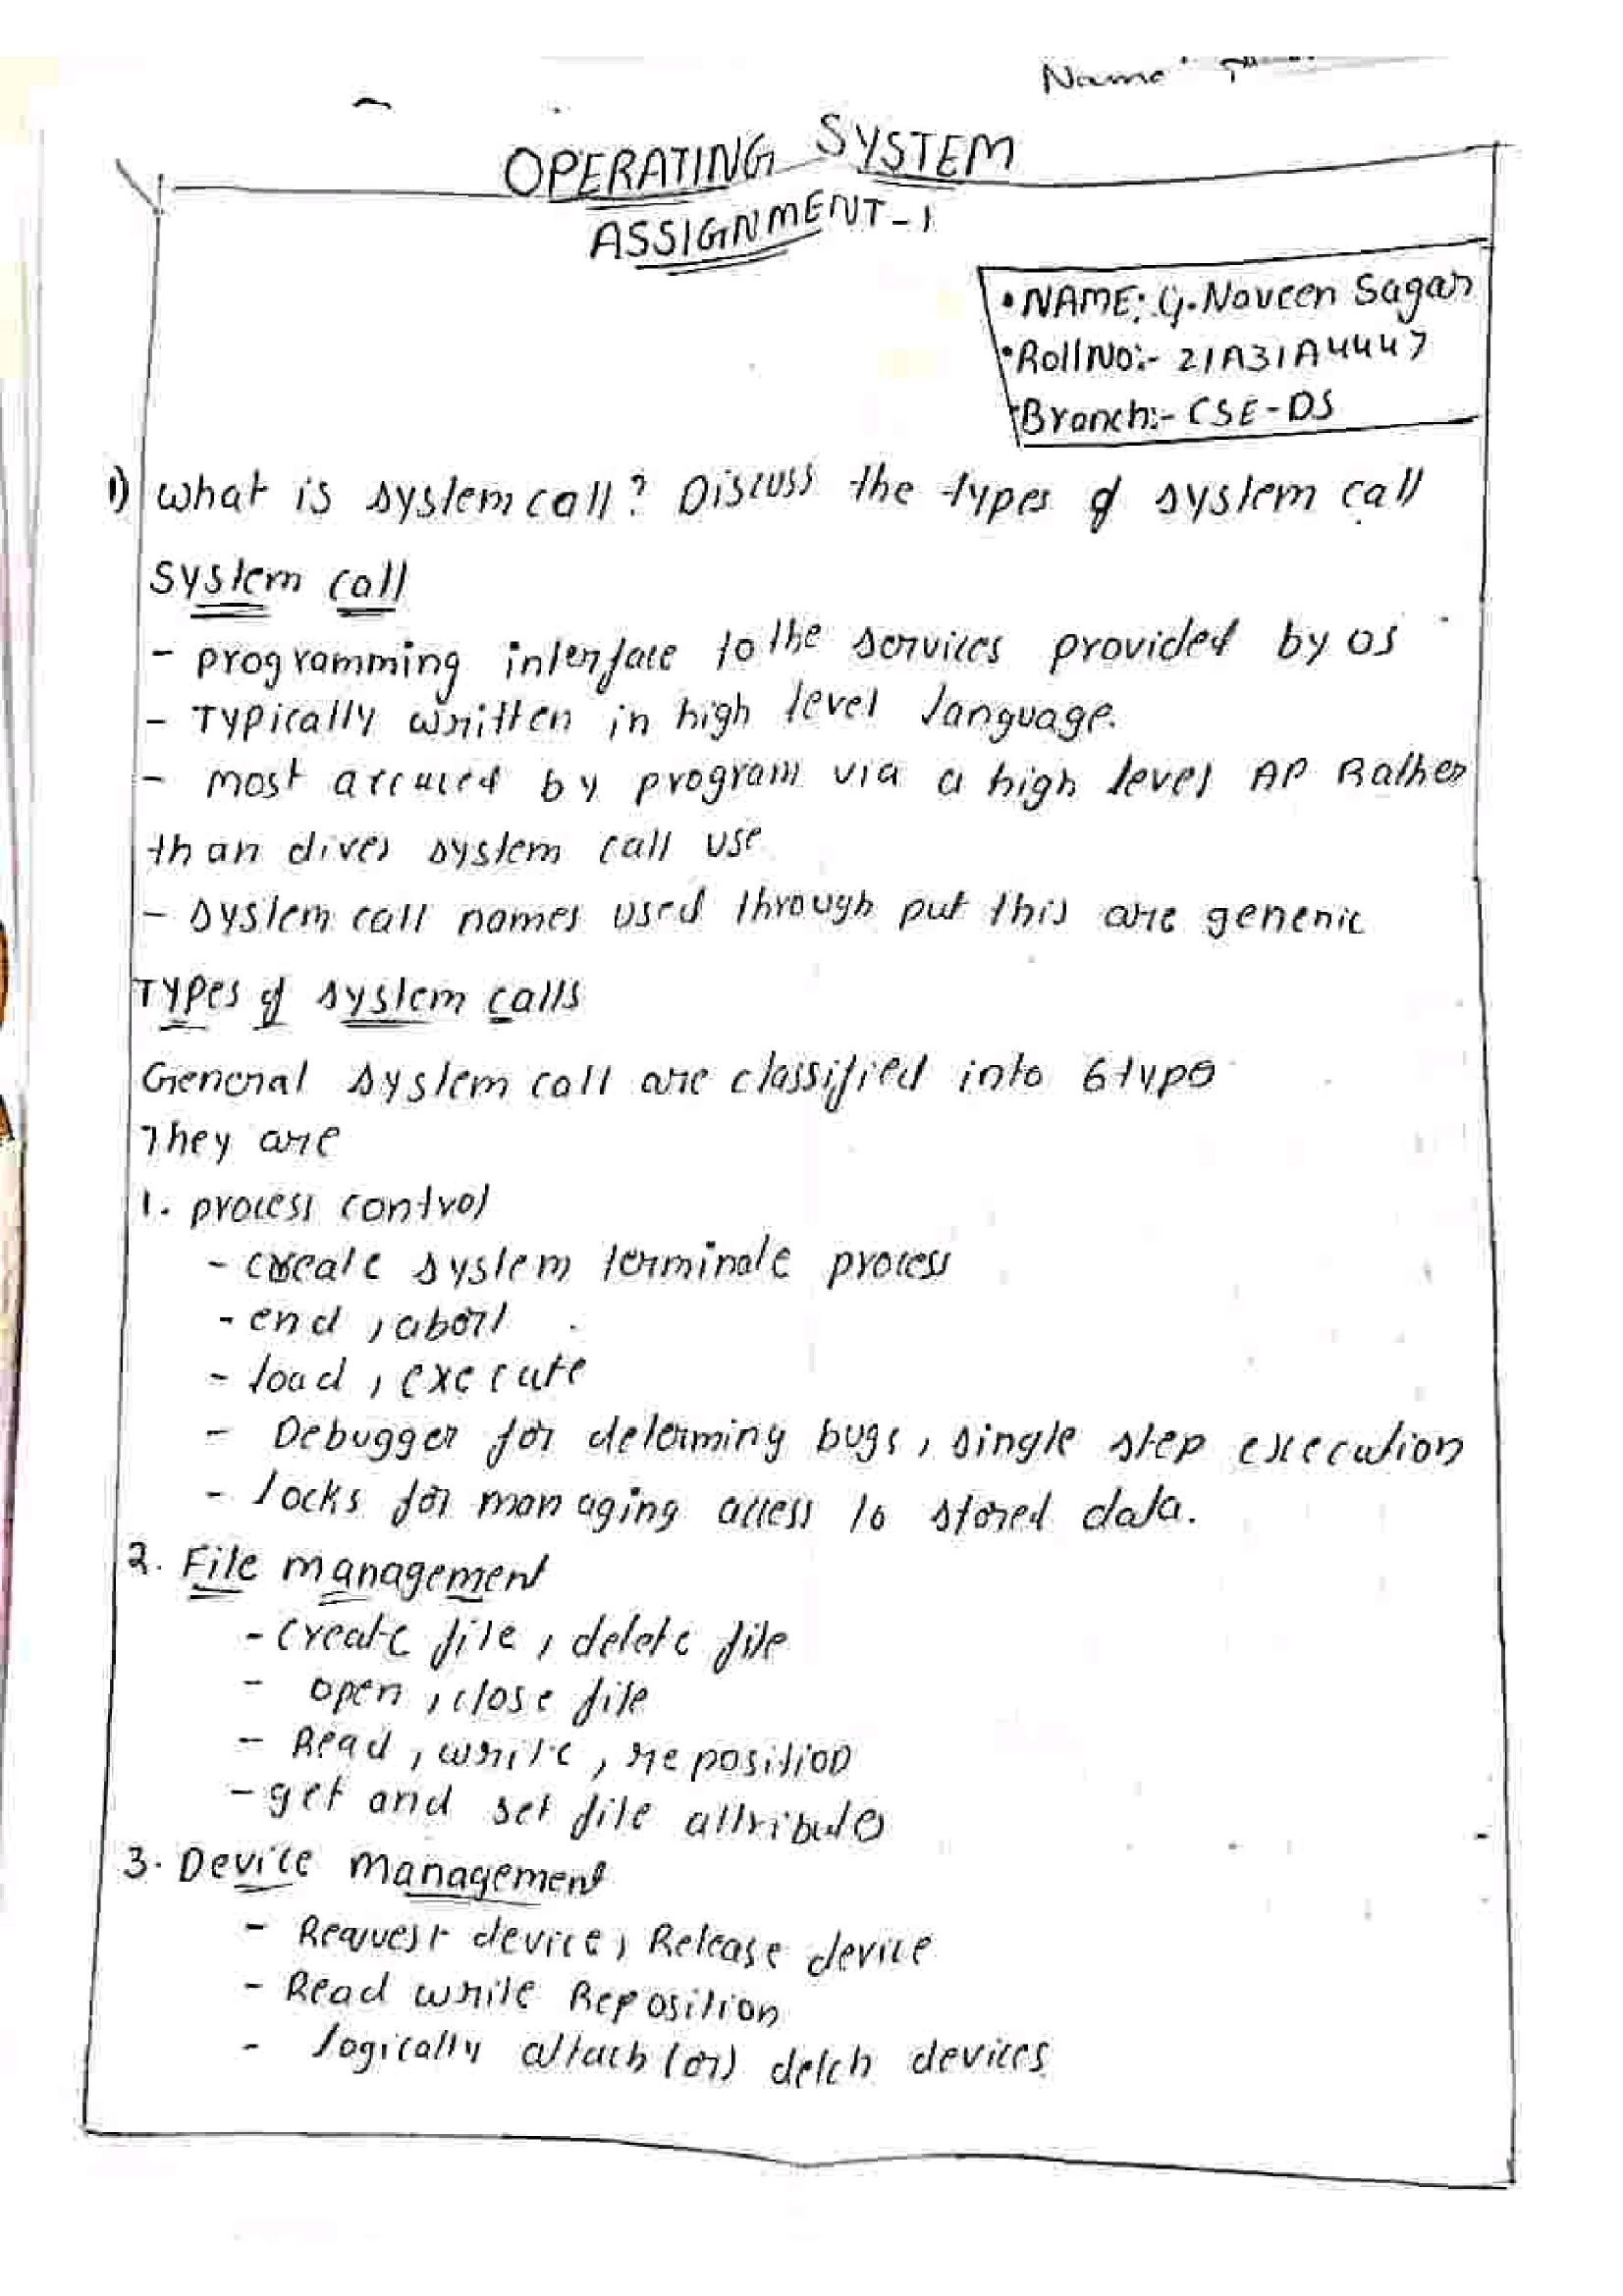 Name
OPERATING SYSTEM
ASSIGNMENT-1
• NAME: G. Naveen Sagar
• Roll No:- 21A31A4447
Branch:- CSE-DS
1) what is system call? Discuss the types of system call
System call
- programming interface to the services provided by OS
- Typically written in high level language.
- most by program via a high level AP Rather
than system call use
- system call names used through put this are generic
Types of system calls
General system call are classified into 6 type
They are
1. process control
- create system terminate process
- end, abort
- load, execute
- Debugger for determing bugs, single step execution
- locks for managing access to stored data.
2. File management
- create file, delete file
- open, close file
- Read, write, reposition
- get and set file attributes
3. Device management
- Request device, Release device
- Read write Reposition
- logically attach (or) detch devices